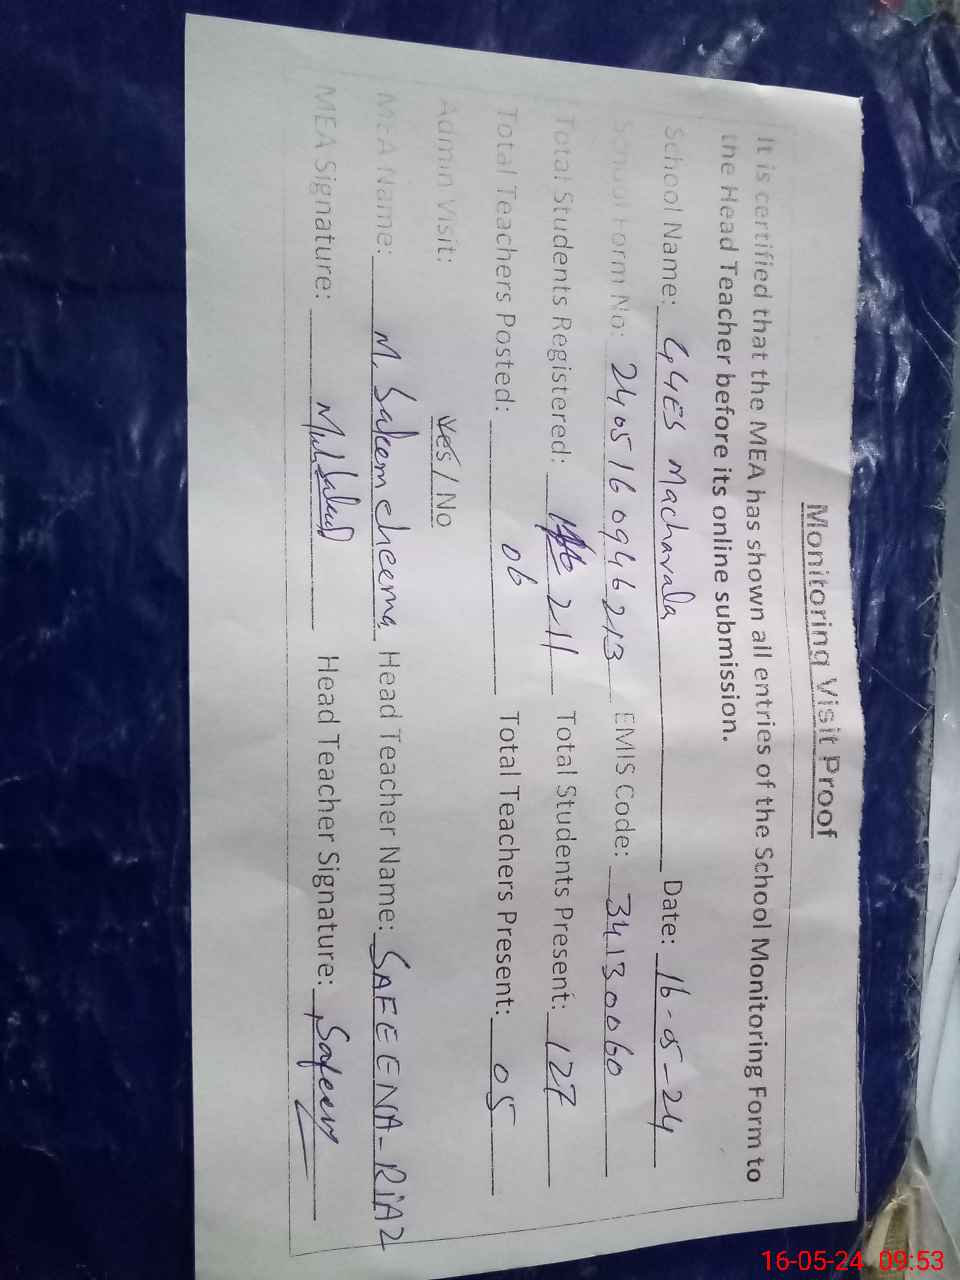 Monitoring Visit Proof
It is certified that the MEA has shown all entries of the School Monitoring Form to
the Head Teacher before its online submission.
School Name: GGES Macharala Date: 16-05-24
School Form No: 2405160946213 EMIS Code: 34130060
Total Students Registered: 211 Total Students Present: 127
Total Teachers Posted: 06 Total Teachers Present: 05
Admin Visit: Yes / No
MEA Name: M. Saleem cheema Head Teacher Name: SAFEENA-RIAZ
MEA Signature: Head Teacher Signature:
16-05-24 09:53